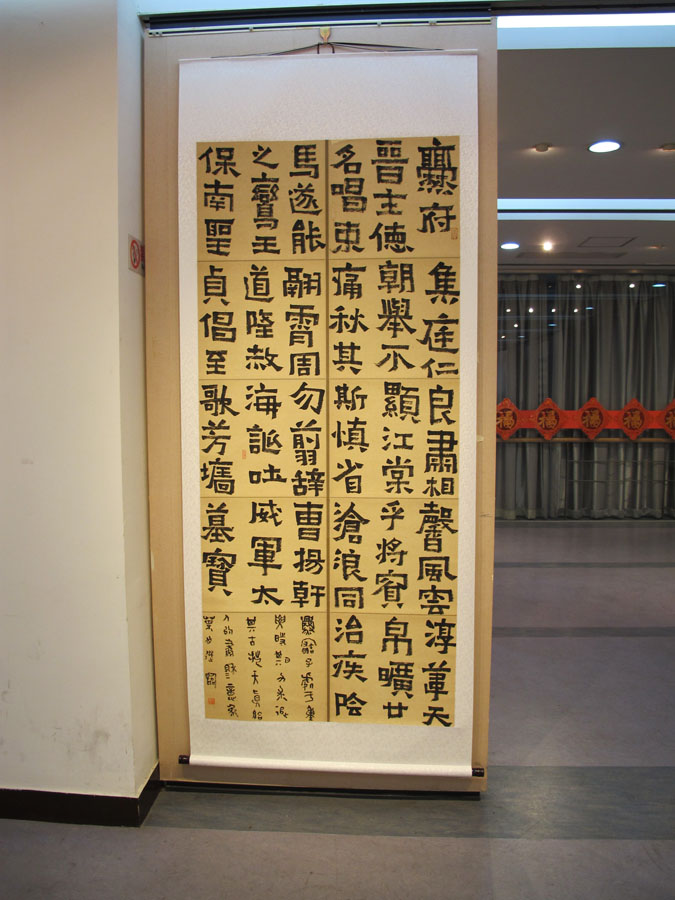 爨府集庭仁良肅相馨風雲淳華天
晉士德朝舉不顯江棠乎將賓帛曠廿
名唱東痛秋其斯慎省滄浪同治疾陰
馬遂能翩霄周勿翦辞曹揚軒
之鸞王道隆赦海謳吐威軍太
保南聖貞倡至歌芳墉墓寶
福
福
福
福